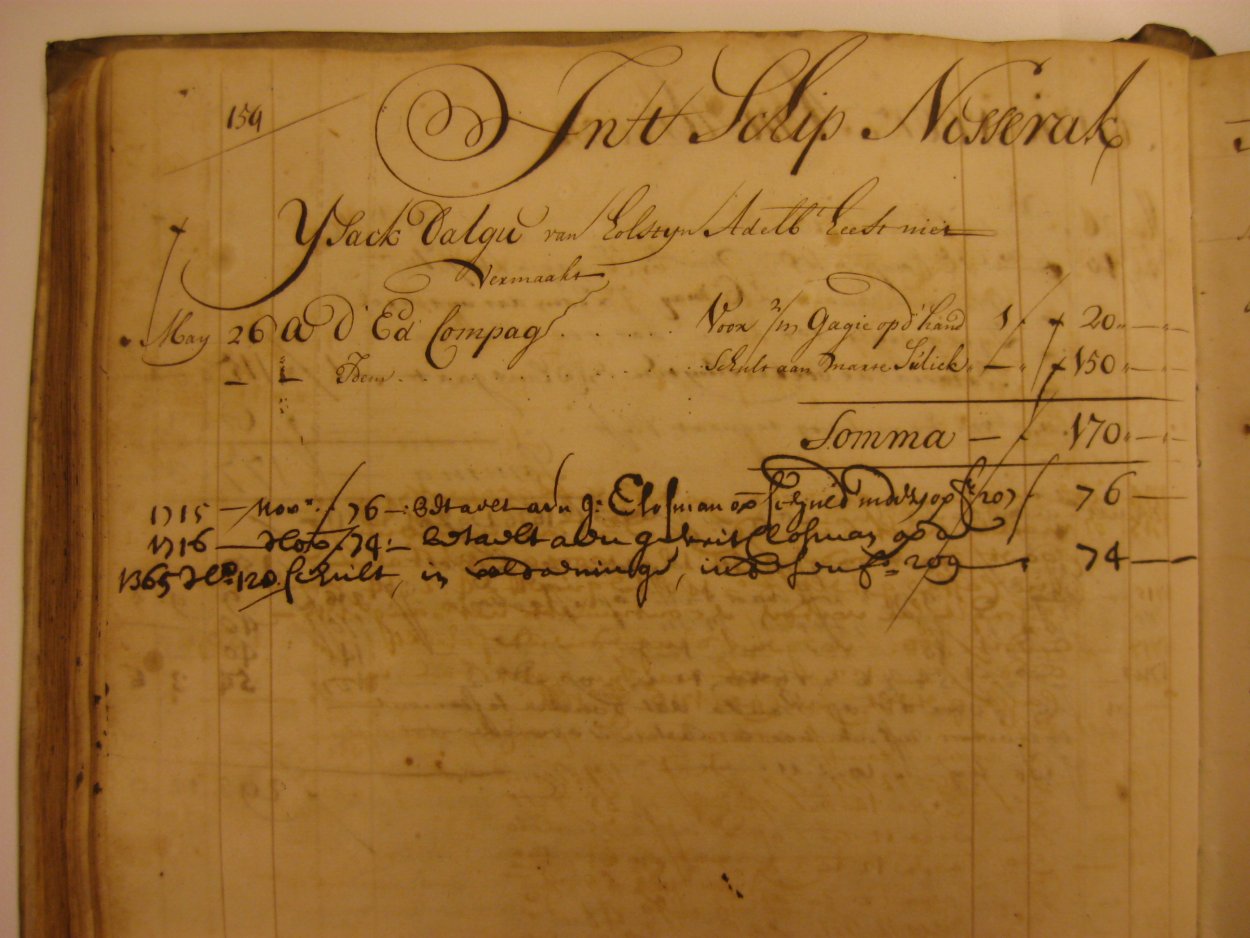 159
Int Schip Nesserak
Ysack Dalgu van Holstyn Adelb: heeft niet
vermaakt
May 26 a d' Ed Compag . . . . . . Voor 2/m Gagie op d' hand 1 f 20
— — Idem . . . . . . Schult aan Marte — f 150
Somma — 170
1715 — Nov: 76 — betaelt aan g: Closman op Schuld op f: 207 76 —
1716 — Nov: 74 — betaelt aen gerrit Closman op de
1365 No: 120 Schult, in voldoeninge, in desen f: 209 74 —